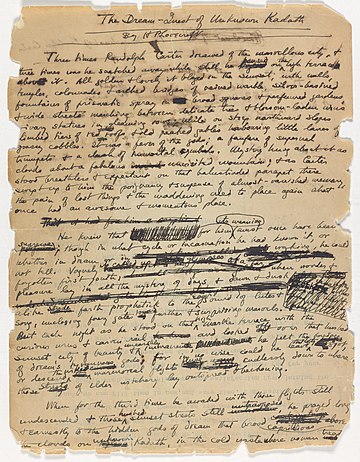 The Dream-Quest of Unknown Kadath
By H P Lovecraft
Three times Randolph Carter dreamed of the marvellous city, &
three times was he snatched away while still he paused on the high terrace
above it. All golden & lovely it blazed in the sunset, with walls,
temples, colonnades & arched bridges of veined marble, silver-basined
fountains of prismatic spray in broad squares & perfumed gardens,
& wide streets marching between delicate trees & blossom-laden urns
& ivory statues in gleaming rows; while on steep northward slopes
climbed tiers of red roofs & old peaked gables harbouring little lanes of
grassy cobbles. It was a fever of the gods; a fanfare of supernal
trumpets & a clash of immortal cymbals. Mystery hung about it as
clouds about a fabulous unvisited mountain; & as Carter
stood breathless & expectant on that balustraded parapet there
swept up to him the poignancy & suspense of almost-vanished memory,
the pain of lost things, & the maddening need to place again what
once had an awesome & momentous place.
He knew that for him its meaning must once have been
supreme; though in what cycle or incarnation he had known it, or
whether in dream or in waking, he could
not tell. Vaguely it
forgotten first youth, when wonder &
pleasure lay in all the mystery of days, & dawn & dusk
alike strode forth prophetick to the sound of lutes &
song,
But each night as he stood on that marble terrace with the
curious urns & carven rail and looked off over that hushed
sunset city of beauty & he felt the bondage
of dream's
or descend
those streets of elder witchery lay outspread & beckoning.
When for the third time he awaked with those flights still
undescended & those hushed sunset streets still he prayed long
& earnestly to the hidden gods of dream that brood capricious above
the clouds on unknown Kadath, in the cold waste where no man